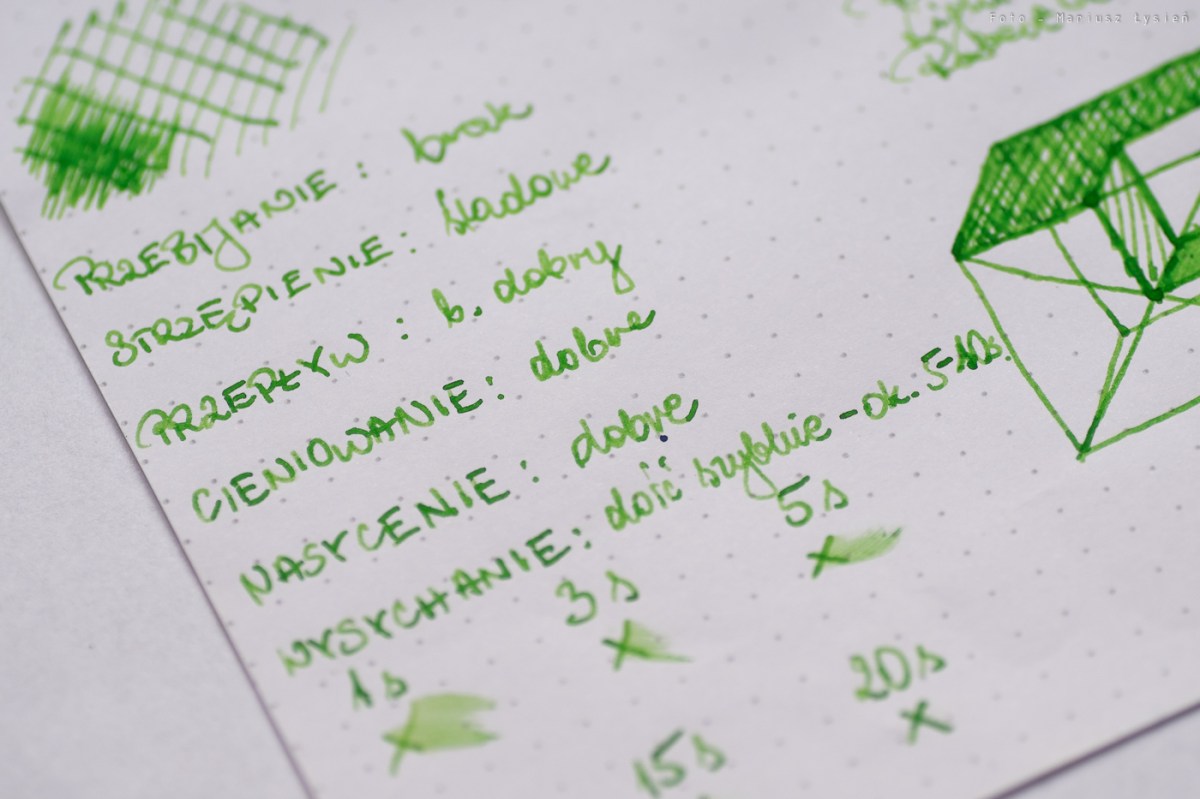 Foto - Mariusz Łysień
PRZEBIJANIE : brak
STRZĘPIENIE : śladowe
PRZEPŁYW : b. dobry
CIENIOWANIE : dobre
NASYCENIE : dobre
WYSYCHANIE : dość szybkie - ok. 5-10s.
1s
3s
5s
15s
20s